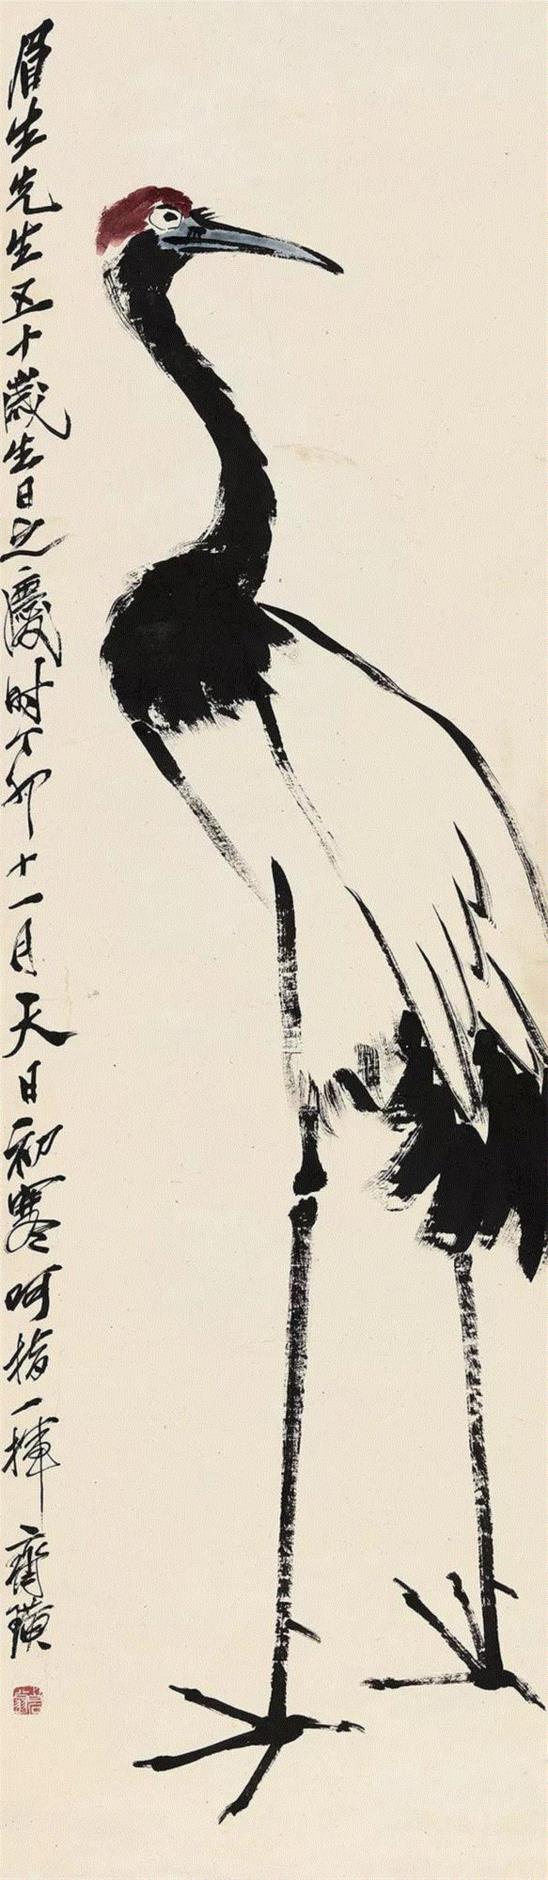 眉生先生五十歲生日之慶時丁卯十一月天日初寒呵指一揮 齊璜